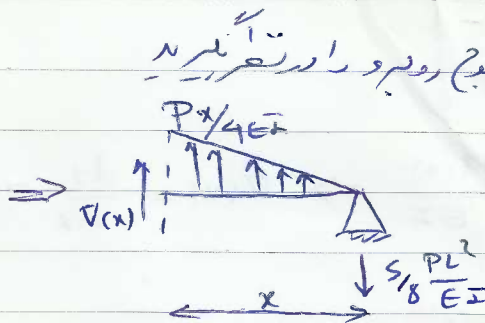 روبرو را در نظر بگیرید
Px/4EI
V(x)
5/8 PL²/EI
x